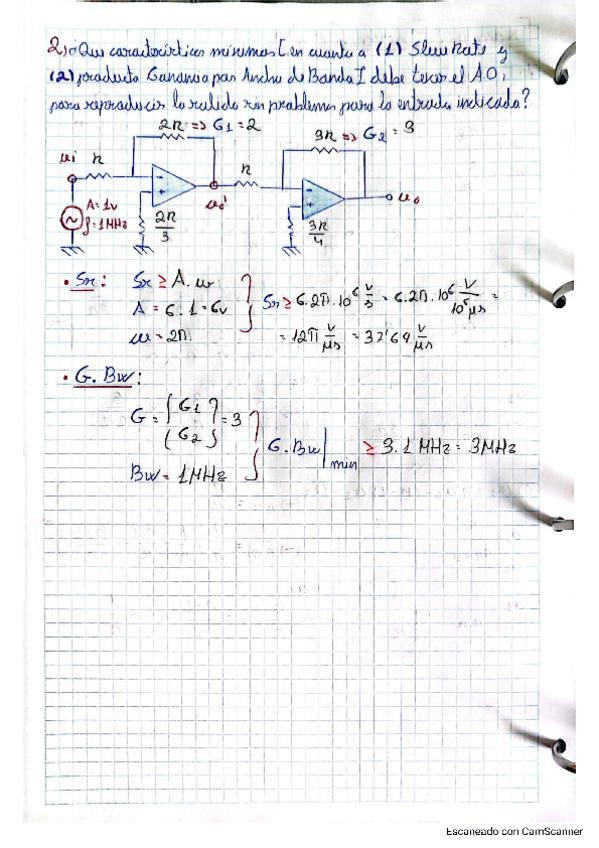 2) ¿Que caracteristicas mínimas [en cuanto a (1) Slew Rate y
(2) producto Ganancia por Ancho de Banda] debe tener el A.O.,
para reproducir la salida sin problemas para la entrada indicada?
2R => G1 = 2
3R => G2 = 3
ui R
R
A = 1v
f = 1MHz
2R/3
uo'
3R/4
uo
• Sr: Sr ≥ A. w
A = 6 . 1 = 6v
w = 2π.
Sr ≥ 6.2π.10^6 v/s = 6.2π.10^6 V/10^6 μs =
= 12π v/μs = 37'69 v/μs
• G. Bw:
G = {G1 G2} = 3
Bw = 1MHz
G. Bw|min ≥ 3.1 MHz = 3MHz
Escaneado con CamScanner